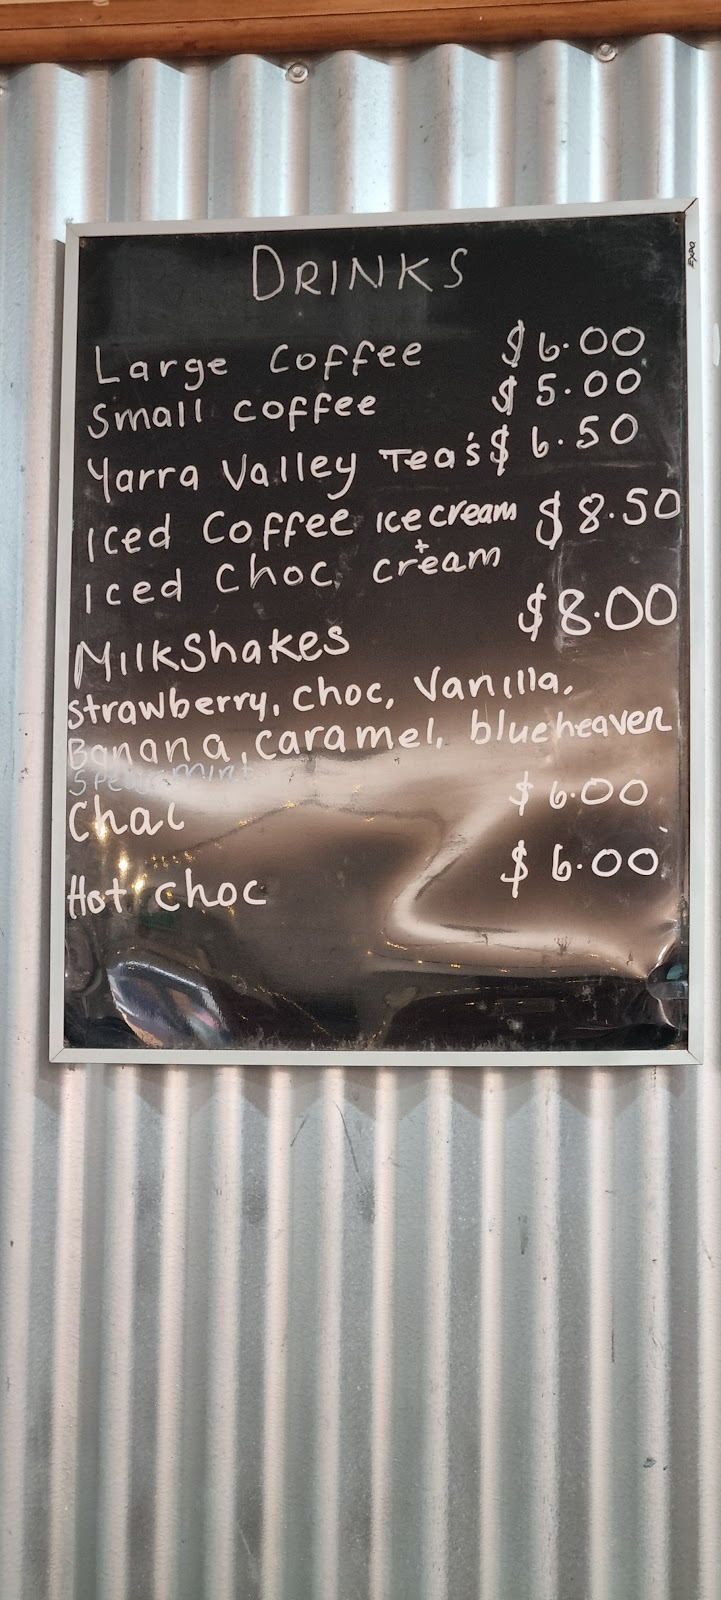 DRINKS
Large Coffee $6.00
Small Coffee $5.00
Yarra Valley Tea's $6.50
Iced Coffee Ice cream $8.50
+
Iced Choc cream
Milkshakes $8.00
Strawberry, Choc, Vanilla,
Banana, Caramel, blueheaven
Spearmint
Chai $6.00
Hot choc $6.00
EXPO